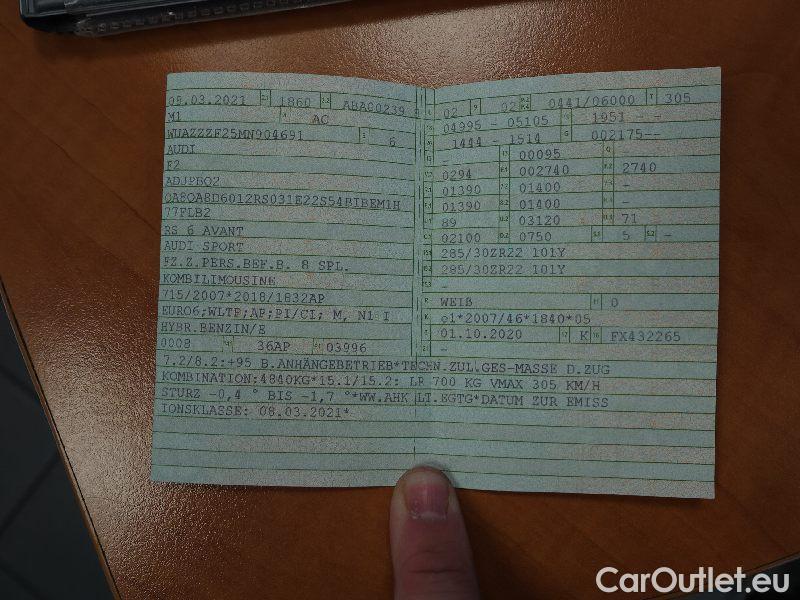 08.03.2021 1860 ABA00239
M1 AC
WUAZZZF25MN904691 6
AUDI
F2
ADJPBQ2
QA8QA8D6012RS031E22S54BIBEM1H
77FLB2
RS 6 AVANT
AUDI SPORT
FZ.Z.PERS.BEF.B. 8 SPL.
KOMBILIMOUSINE
715/2007*2018/1832AP
EURO6;WLTP;AP;PI/CI; M, N1 I
HYBR.BENZIN/E
0008 36AP 03996
02 02 0441/06000 305
04995 - 05105 1951 - -
1444 - 1514 002175--
- 00095
0294 002740 2740
01390 01400 -
01390 01400 -
89 03120 71
02100 0750 5 -
285/30ZR22 101Y
285/30ZR22 101Y
-
WEIß 0
e1*2007/46*1840*05
01.10.2020 K FX432265
-
7.2/8.2:+95 B.ANHÄNGEBETRIEB*TECHN.ZUL.GES-MASSE D.ZUG
KOMBINATION:4840KG*15.1/15.2: LR 700 KG VMAX 305 KM/H
STURZ -0,4 ° BIS -1,7 °*WW.AHK LT.EGTG*DATUM ZUR EMISS
IONSKLASSE: 08.03.2021*
CarOutlet.eu